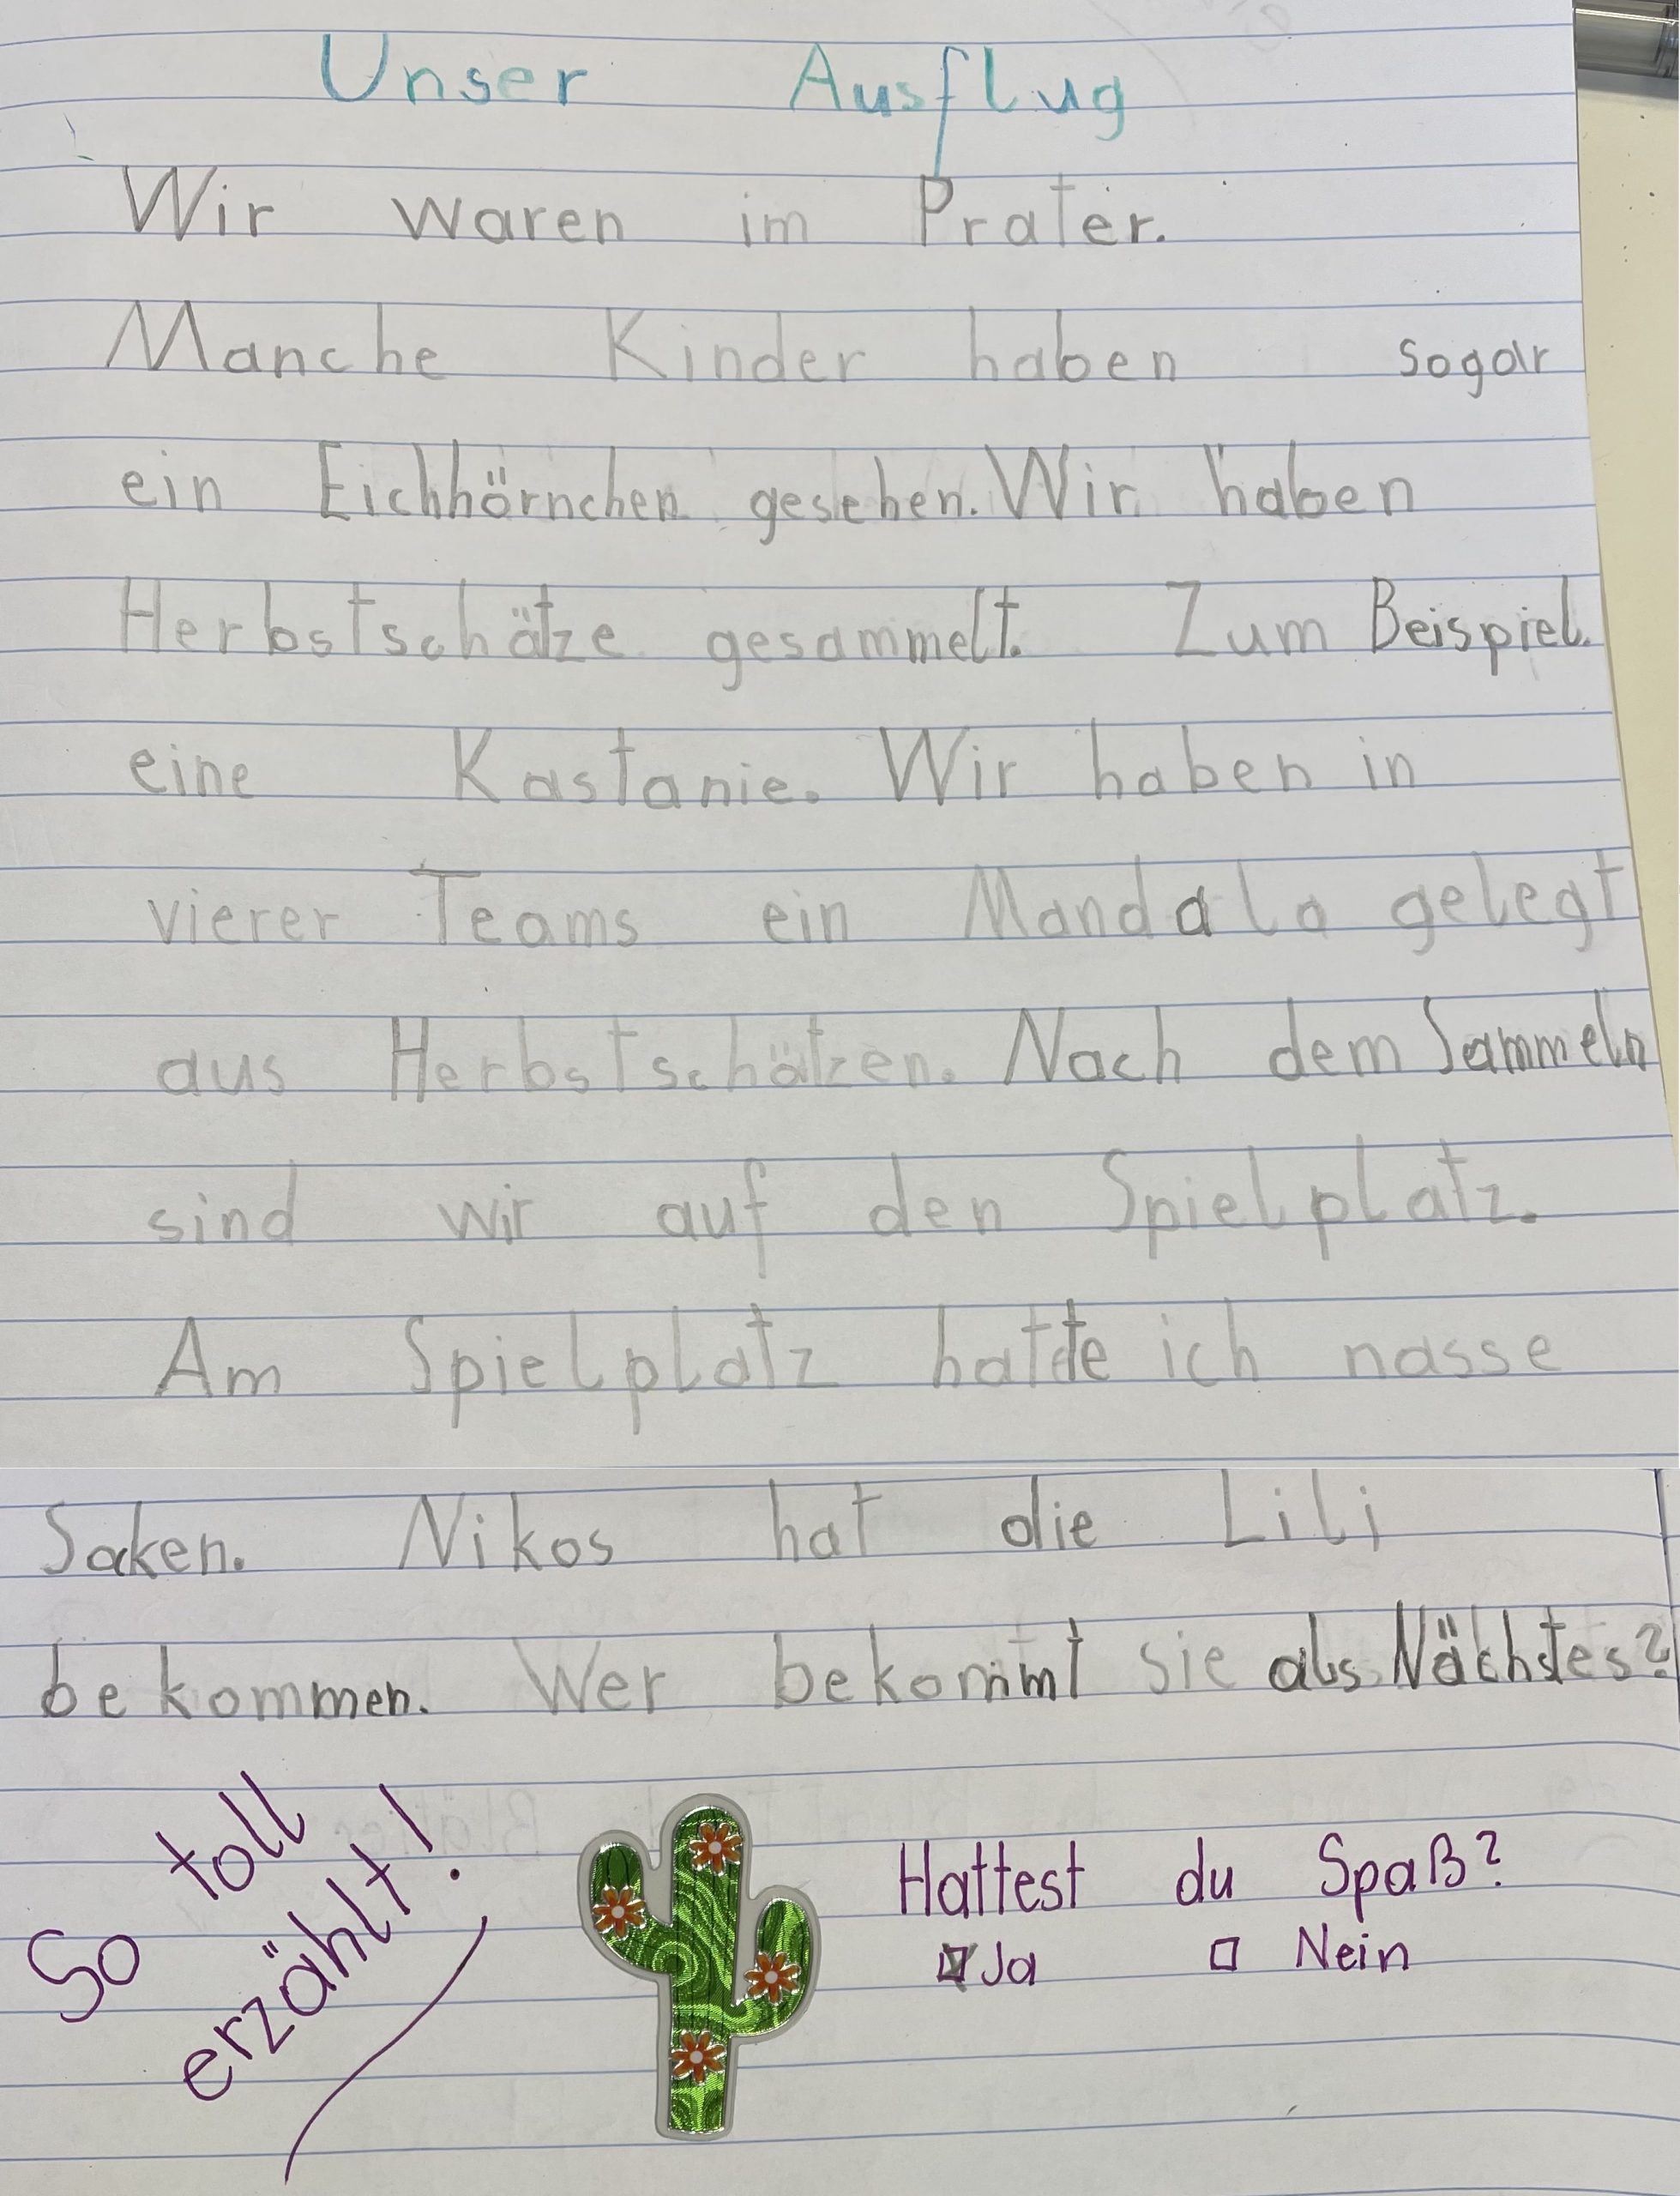 Unser Ausflug
Wir waren im Prater.
Manche Kinder haben sogar
ein Eichhörnchen gesehen. Wir haben
Herbstschätze gesammelt. Zum Beispiel.
eine Kastanie. Wir haben in
vierer Teams ein Mandala gelegt
aus Herbstschätzen. Nach dem Sammeln
sind wir auf den Spielplatz.
Am Spielplatz hatte ich nasse
Socken. Nikos hat die Lili
bekommen. Wer bekommt sie als Nächstes?
So toll
erzählt!
Hattest du Spaß?
Ja Nein